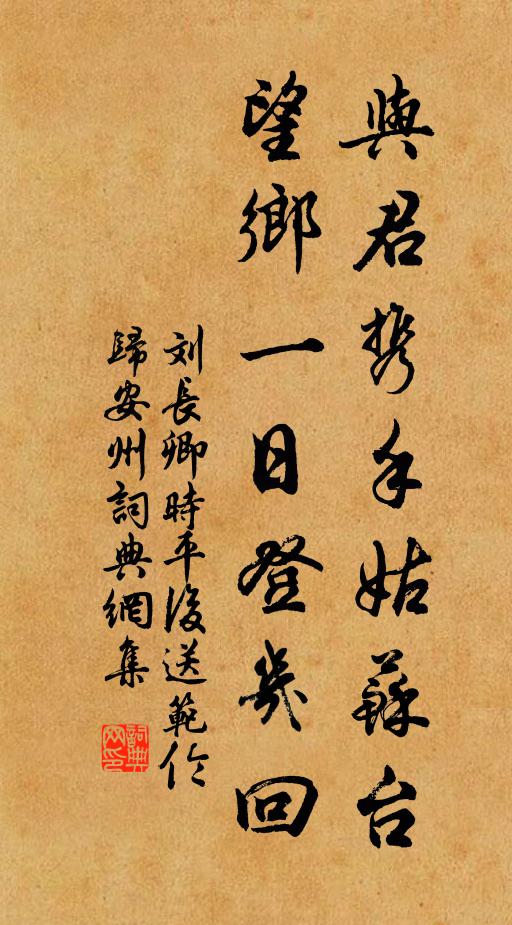 與君携手姑蘇台
望鄉一日登幾回
刘長卿時平後送範伦
歸安州詞典網集
詞典網印